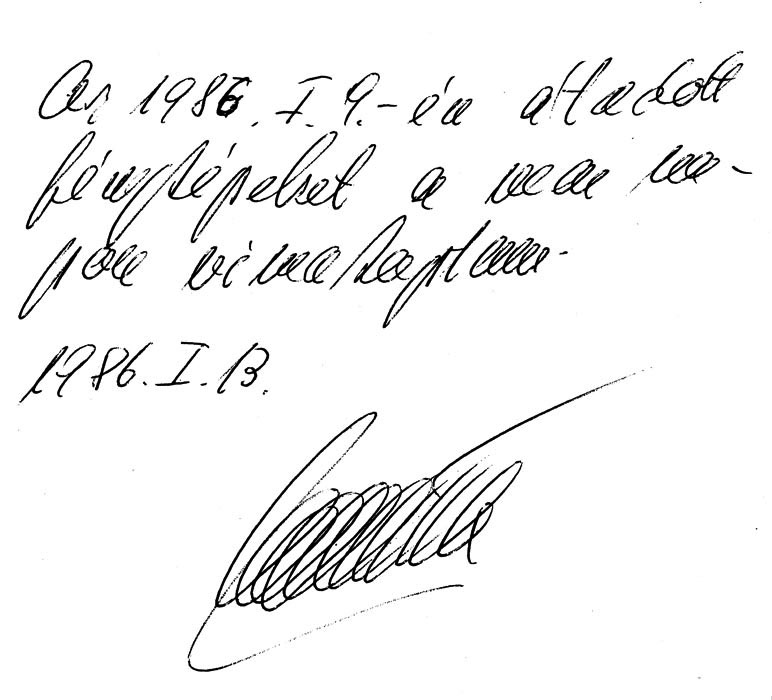 Az 1986. I. 9.-én átadott
fényképeket a mai na-
pon visszakaptam.
1986. I. 13.